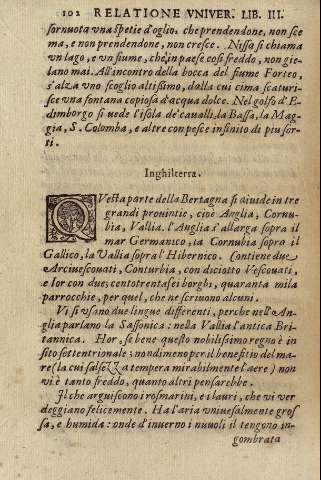 102 RELATIONE VNIVER. LIB. III.
sornuota una spetie d'oglio. che prendendone, non sce
ma, e non prendendone, non cresce. Nisso si chiama
un lago, e un fiume, che, in paese cosi freddo, non gie-
lano mai. All'incontro della bocca del fiume Forteo,
s'alza uno scoglio altissimo, dalla cui cima scaturi-
sce una fontana copiosa d'acqua dolce. Nel golfo d'E-
dimborgo si uede l'isola de'caualli, la Bassa, la Mag-
gia, S. Colomba, e altre con pesce infinito di piu sor-
ti.
Inghilterra.
QVesta parte della Bertagna si diuide in tre
grandi prouintie, cioè Anglia, Cornu-
bia, Vallia. l'Anglia s'allarga sopra il
mar Germanico, la Cornubia sopra il
Gallico, la Vallia sopra l'Hibernico. Contiene due
Arciuescouati, Conturbia, con diciotto Vescouati,
e Ior con due; cento trenta sei borghi, quaranta mila
parrocchie, per quel, che ne scriuono alcuni.
Vi si usano due lingue differenti, perche nell'An-
glia parlano la Sassonica: nella Vallia l'antica Bri-
tannica. Hor, se bene questo nobilissimo regno è in
sito settentrionale; nondimeno per il benefitio del ma-
re (la cui salsezza tempera mirabilmente l'aere) non
vi è tanto freddo, quanto altri pensarebbe.
Il che arguiscono i rosmarini, e i lauri, che vi ver
deggiano felicemente. Ha l'aria vniuesalmente gros
sa, e humida: onde d'inuerno i nuuoli il tengono in-
gombrata